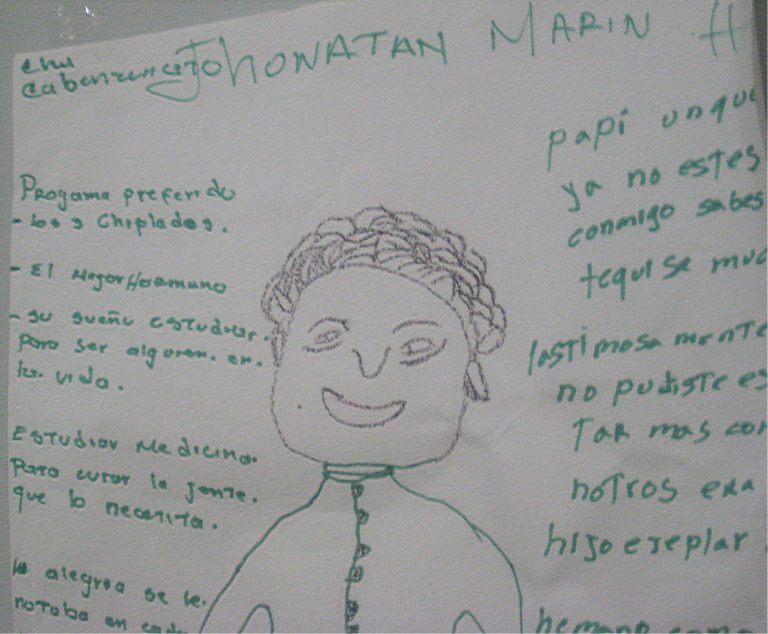 JohoNATAN MARIN H
Progama preferido
- los 3 Chiplados.
- El mejor Hermano
- su sueñu estudiar.
Para ser alguien. en.
la. vida.
Estudiar Medicina.
Para curar la jente.
que lo necesita.
la alegroa se le.
notaba en cada
papi unque
ya no estes
conmigo sabes
tequise muc
lastimosamente
no pudiste es
Tar mas con
notros era
hijo ejeplar
hemano como